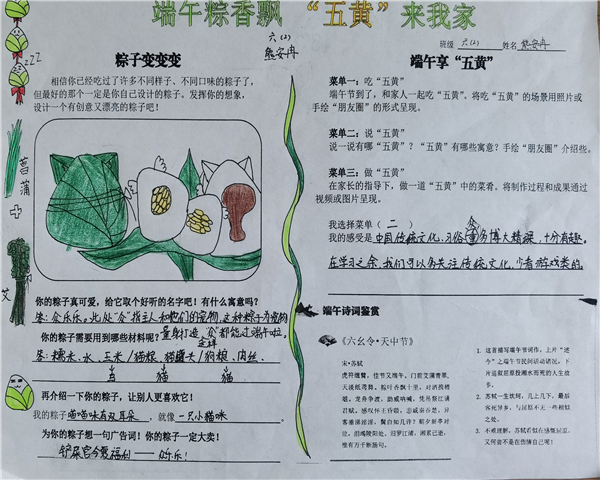 端午粽香飘 “五黄”来我家
六(2)
熊安冉
粽子变变变
相信你已经吃过了许多不同样子、不同口味的粽子了,
但最好的那个一定是你自己设计的粽子。发挥你的想象,
设计一个有创意又漂亮的粽子吧!
zzz
菖蒲
艾
你的粽子真可爱,给它取个好听的名字吧!有什么寓意吗?
量身打造
你的粽子需要用到哪些材料呢?
答:糯米、水、玉米/猫粮、
鸟 猫 猫
再介绍一下你的粽子,让别人更喜欢它!
我的粽子喵喵味有双耳朵,就像一只小猫咪。
为你的粽子想一句广告词!你的粽子一定大卖!
班级 六(2) 姓名 熊安冉
端午享“五黄”
菜单一:吃“五黄”
端午节到了,和家人一起吃“五黄”。将吃“五黄”的场景用照片或
手绘“朋友圈”的形式呈现。
菜单二:说“五黄”
说一说有哪“五黄”?“五黄”有哪些寓意?手绘“朋友圈”介绍些。
菜单三:做“五黄”
在家长的指导下,做一道“五黄”中的菜肴。将制作过程和成果通过
视频或图片呈现。
我选择菜单(二)
我的感受是中国传统文化、习俗众多博大精深,十分有趣。
在学习之余,我们可以多关注传统文化,少看游戏类的。
端午诗词鉴赏
《六幺令·天中节》
宋·苏轼
虎符缠臂,佳节又端午。门前艾蒲青翠,
天淡纸鸢舞。粽叶香飘十里,对酒携樽
俎。龙舟争渡,助威呐喊,凭吊祭江诵
君赋。感叹怀王昏聩,悲戚秦吞楚。异
客垂涕淫淫,鬓白知几许?朝夕新亭对
泣,泪竭陵阳处。汨罗江渚,湘累已逝,
惟有万千断肠句。
1. 这首描写端午节词作,上片“述
今”上端午节民间活动诸况,下
2. 苏轼一生坎坷,几上几下,最后
客死异乡,与屈原不无一些相似
之处。
3. 不难理解,苏轼看似在感慨屈原,
又何尝不是在伤情自己呢!